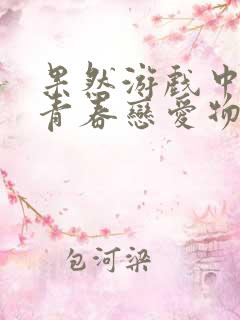 果然游戏中
青春戀爱物
包河梁